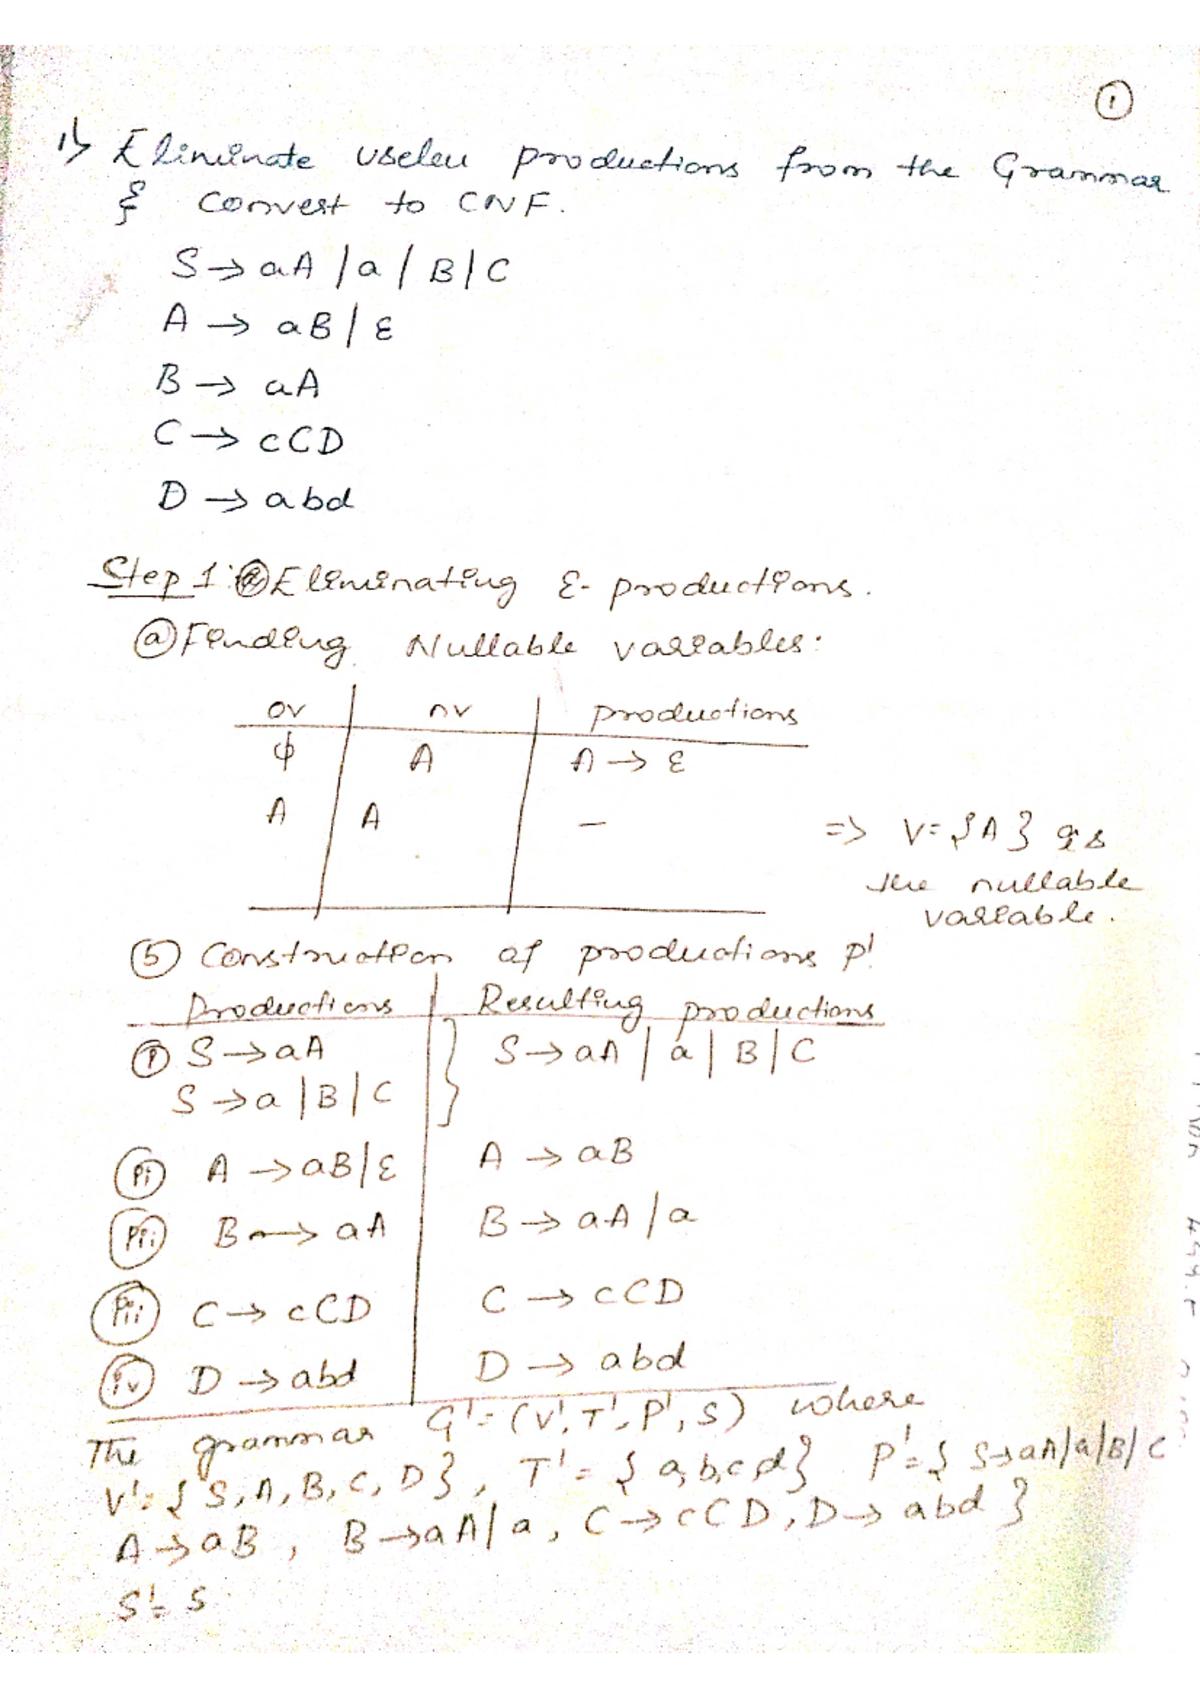 ①
1) Eliminate useless productions from the Grammar
& Convert to CNF.
S → aA | a | B | C
A → aB | ε
B → aA
C → cCD
D → abd
Step 1: Eliminating ε- productions.
ⓐ Finding Nullable variables:
ov nv productions
ϕ A A → ε
A A —
=> V = {A} is
the nullable
variable.
⑤ Construction of productions P'.
Productions Resulting productions
ⓘ S → aA } S → aA | a | B | C
S → a | B | C
ii A → aB | ε A → aB
iii B → aA B → aA | a
iii C → cCD C → cCD
iv D → abd D → abd
The grammar G' = (V', T', P', S) where
V' = { S, A, B, C, D }, T' = { a, b, c, d } P' = { S → aA | a | B | C
A → aB, B → aA | a, C → cCD, D → abd }
S' = S.